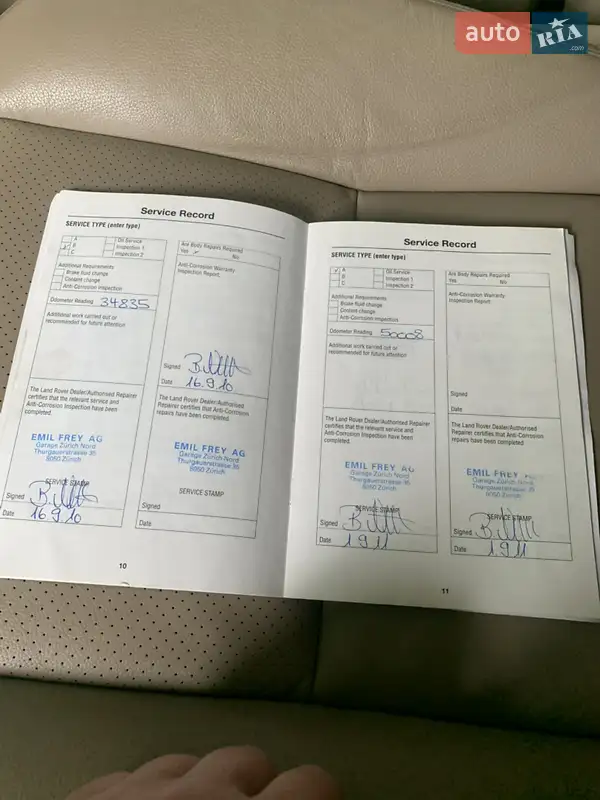 auto RIA .com
Service Record
SERVICE TYPE (enter type)
A
B
C
Oil Service
Inspection 1
Inspection 2
Additional Requirements
Brake fluid change
Coolant change
Anti-Corrosion Inspection
Odometer Reading 34835
Additional work carried out or
recommended for future attention
The Land Rover Dealer/Authorised Repairer
certifies that the relevant service and
Anti-Corrosion Inspection have been
completed.
EMIL FREY AG
Garage Zürich Nord
Thurgauerstrasse 35
8050 Zürich
SERVICE STAMP
Signed
Date 16.9.10
Are Body Repairs Required
Yes No
Anti-Corrosion Warranty
Inspection Report
Signed
Date 16.9.10
The Land Rover Dealer/Authorised
Repairer certifies that Anti-Corrosion
repairs have been completed.
EMIL FREY AG
Garage Zürich Nord
Thurgauerstrasse 35
8050 Zürich
SERVICE STAMP
Signed
Date
10
Service Record
SERVICE TYPE (enter type)
A
B
C
Oil Service
Inspection 1
Inspection 2
Additional Requirements
Brake fluid change
Coolant change
Anti-Corrosion Inspection
Odometer Reading 50008
Additional work carried out or
recommended for future attention
The Land Rover Dealer/Authorised Repairer
certifies that the relevant service and
Anti-Corrosion Inspection have been
completed.
EMIL FREY AG
Garage Zürich Nord
Thurgauerstrasse 35
8050 Zürich
SERVICE STAMP
Signed
Date 1.9.11
Are Body Repairs Required
Yes No
Anti-Corrosion Warranty
Inspection Report
Signed
Date
The Land Rover Dealer/Authorised
Repairer certifies that Anti-Corrosion
repairs have been completed
EMIL FREY
Garage Zürich Nord
Thurgauerstrasse 35
8050 Zürich
SERVICE STAMP
Signed
Date 1.9.11
11